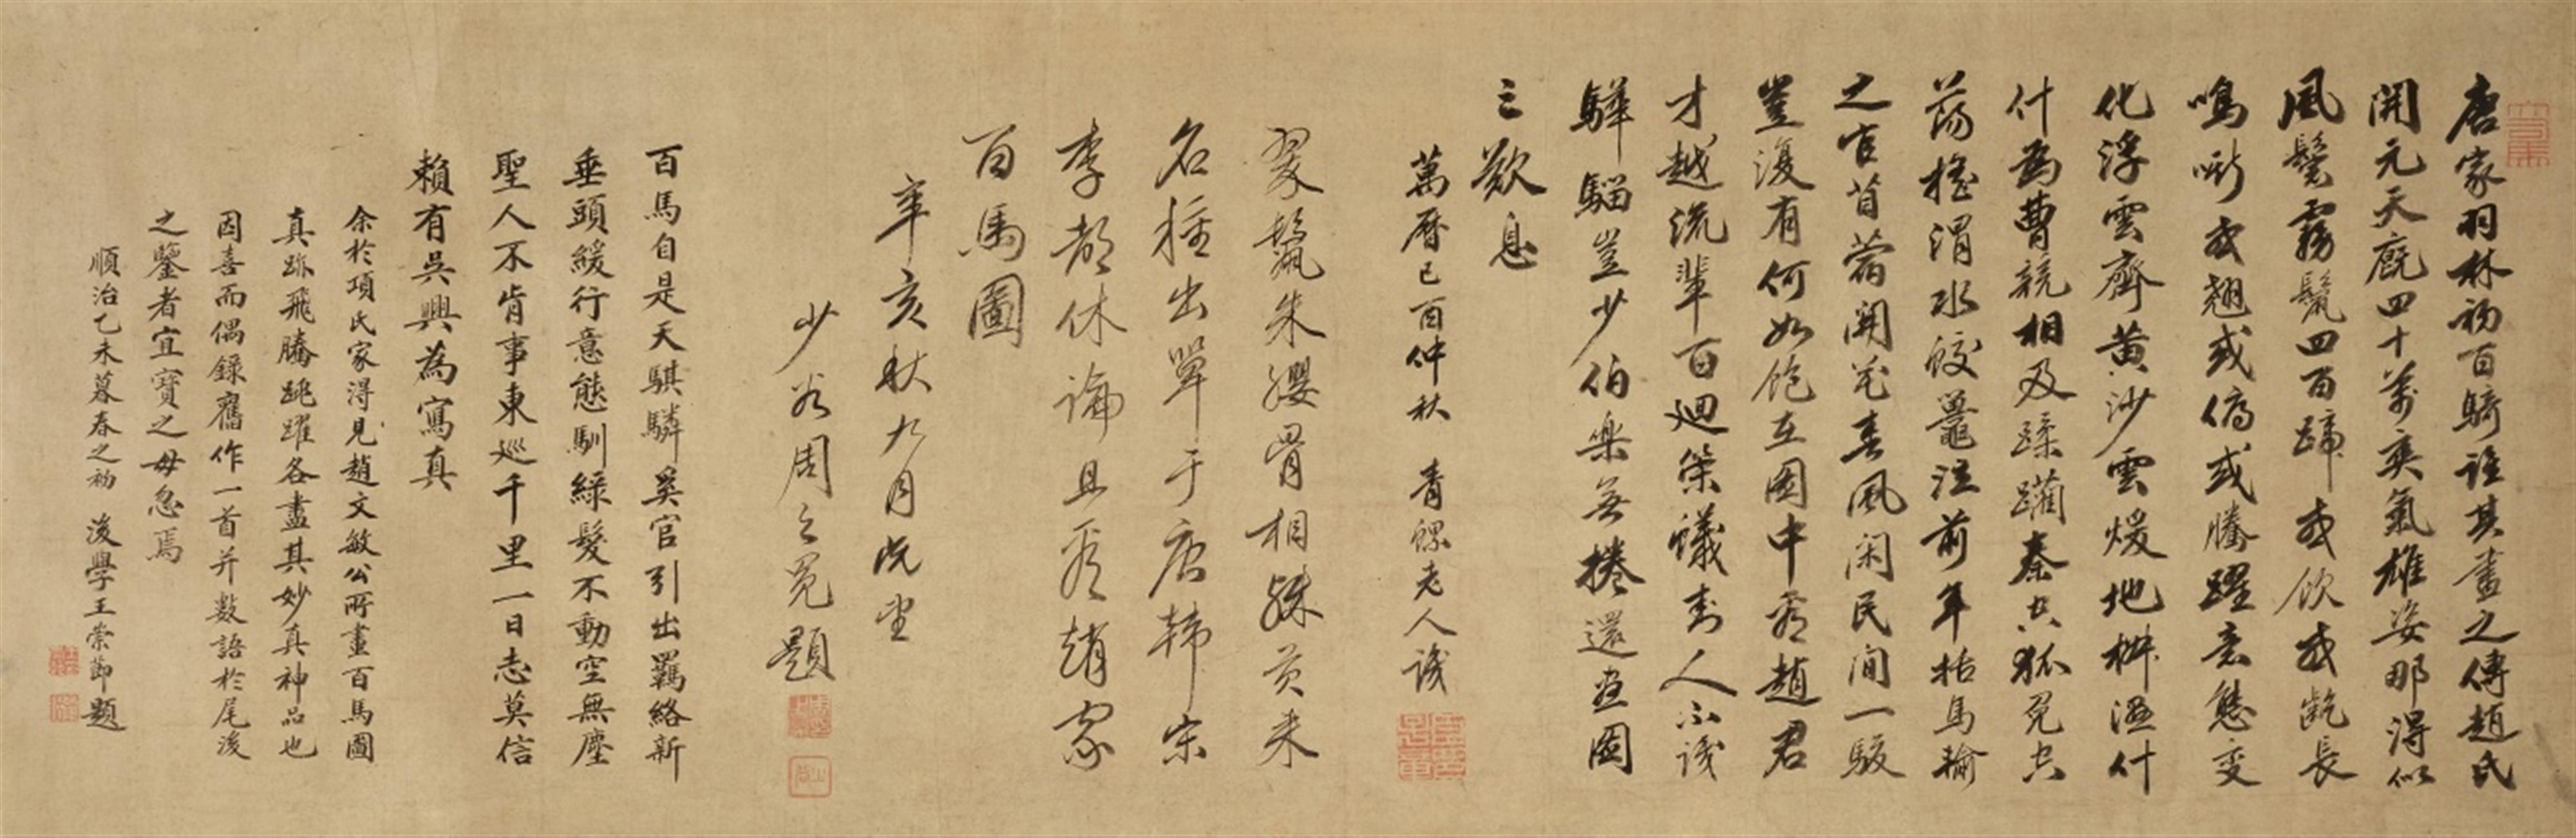 唐家羽林初百騎誰其畫之傳趙氏
開元天廐四十萬奕氣雄姿那得似
風鬃霧鬣四百蹄或飲或齕長
鳴嘶或翹或俯或騰躍意態变
化浮雲齊黄沙雲煖地椒濕什
什為曹競相及蹂躪秦宫狐兔宫
蕩搖渭水蛟鼉泣前年括馬輸
之官苜蓿開花春風闲民間一駿
豈復有何如飽在圖中看趙君
才越流輩百廻築蟻書人不識
驊騮豈少伯樂無捲還畫圖
三歎息
萬曆己酉仲秋 青螺老人識
翠鬣朱纓骨相殊貢来
名種出單于唐韓宋
李都休論且看趙家
百馬圖
辛亥秋九月既望
少谷周之冕題
百馬自是天騏驎奚官引出羈絡新
垂頭緩行意態馴緑髮不動空無塵
聖人不肯事東巡千里一日志莫信
賴有吳興為寫真
余於項氏家得見趙文敏公所畫百馬圖
真跡飛騰跳躍各盡其妙真神品也
因喜而偶錄舊作一首并數語於尾後
之鑒者宜寶之毋忽焉
順治乙未暮春之初 後學王崇節題